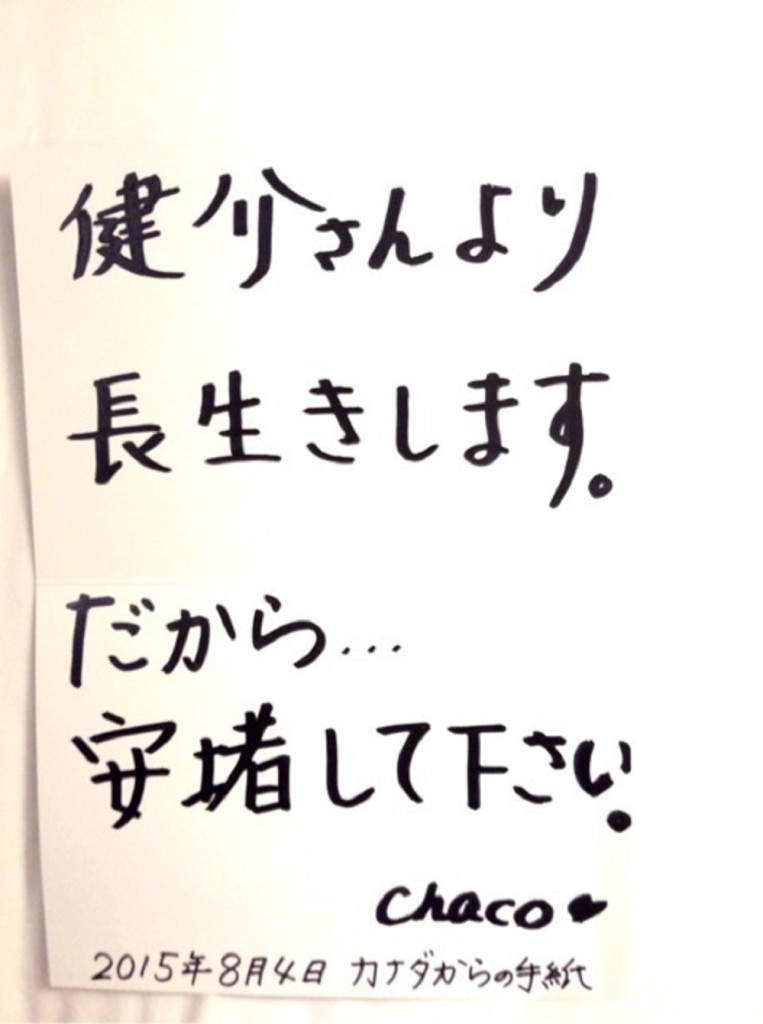 健介さんより
長生きします。
だから...
安堵して下さい。
chaco♥
2015年8月4日 カナダからの手紙